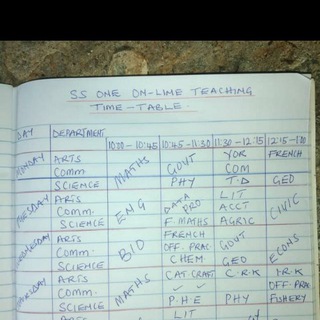 SS ONE ON-LINE TEACHING
TIME-TABLE.
DAY DEPARTMENT 10:00-10:45 10:45-11:30 11:30-12:15 12:15-1:00
MONDAY ARTS MATHS GOVT YOR FRENCH
Comm COM
SCIENCE PHY T.D GEO
TUESDAY ARTS ENG DATA PRO LIT CIVIC
Comm. ACCT
SCIENCE F. MATHS AGRIC
WEDNESDAY ARTS BIO FRENCH GOVT ECONS
Comm. OFF. PRAC
SCIENCE CHEM GEO
ARTS MATHS CAT. CRAFT C R K I.R.K
Comm. ✓ ✓ OFF. PRA
SCIENCE P.H.E PHY FISHERY
LIT